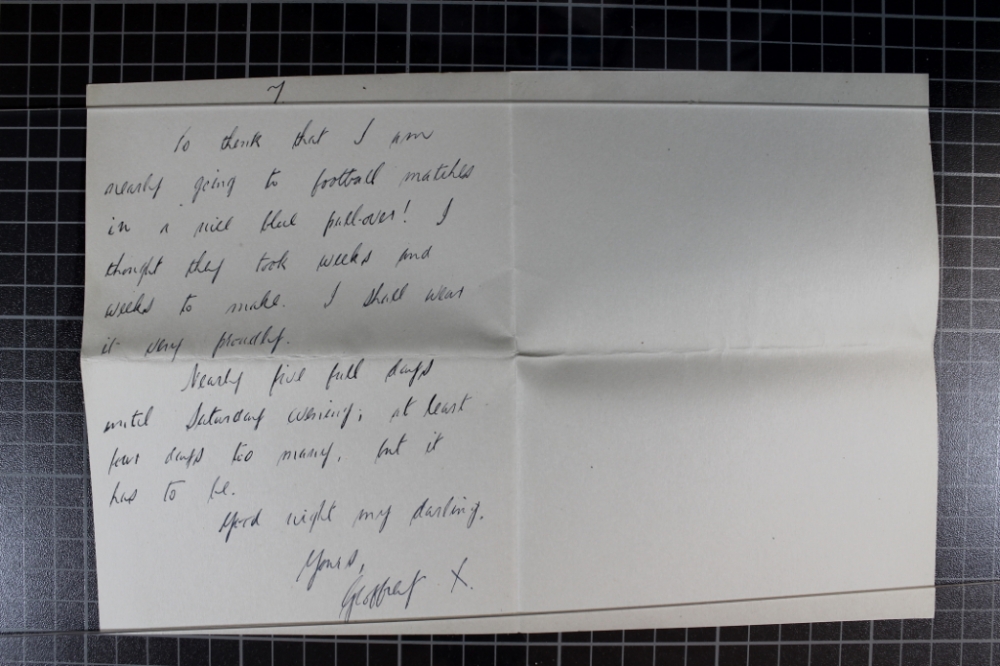 7
To think that I am
nearly going to football matches
in a nice blue pull-over! I
thought they took weeks and
weeks to make. I shall wear
it very proudly.
Nearly five full days
until Saturday evening; at least
four days too many, but it
has to be.
Good night my darling.
Yours,
Geoffrey X.